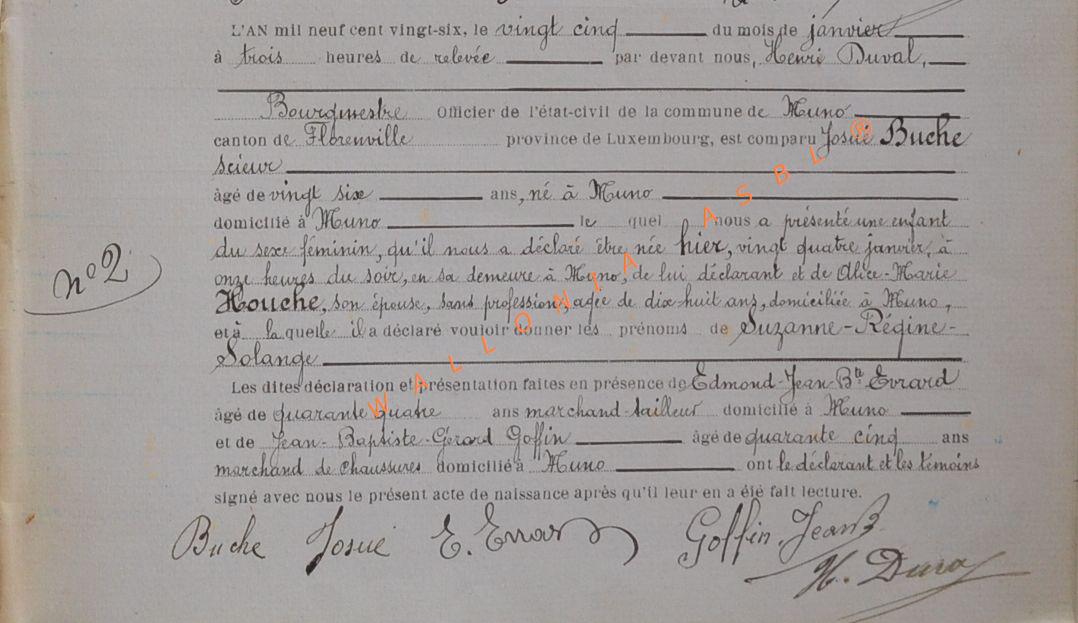 L'AN mil neuf cent vingt-six, le vingt cinq du mois de janvier
à trois heures de relevée par devant nous, Henri Duval,
Bourgmestre Officier de l'état-civil de la commune de Muno
canton de Florenville province de Luxembourg, est comparu Josué Buche
scieur
âgé de vingt six ans, né à Muno
domicilié à Muno le quel nous a présenté une enfant
du sexe féminin, qu'il nous a déclaré être née hier, vingt quatre janvier, à
onze heures du soir, en sa demeure à Muno, de lui déclarant et de Alice-Marie
Houche, son épouse, sans profession, agée de dix huit ans, domiciliée à Muno,
et à la quelle il a déclaré vouloir donner les prénoms de Suzanne-Régine-
Solange
Les dites déclaration et présentation faites en présence de Edmond-Jean-Bte Evrard
âgé de quarante quatre ans marchand-tailleur domicilié à Muno
et de Jean-Baptiste-Gérard Goffin âgé de quarante cinq ans
marchand de chaussures domicilié à Muno ont le déclarant et les témoins
signé avec nous le présent acte de naissance après qu'il leur en a été fait lecture.
n° 2
WALLONIA ASBL ®
Buche Josué E. Evrard Goffin Jean B
H. Duval